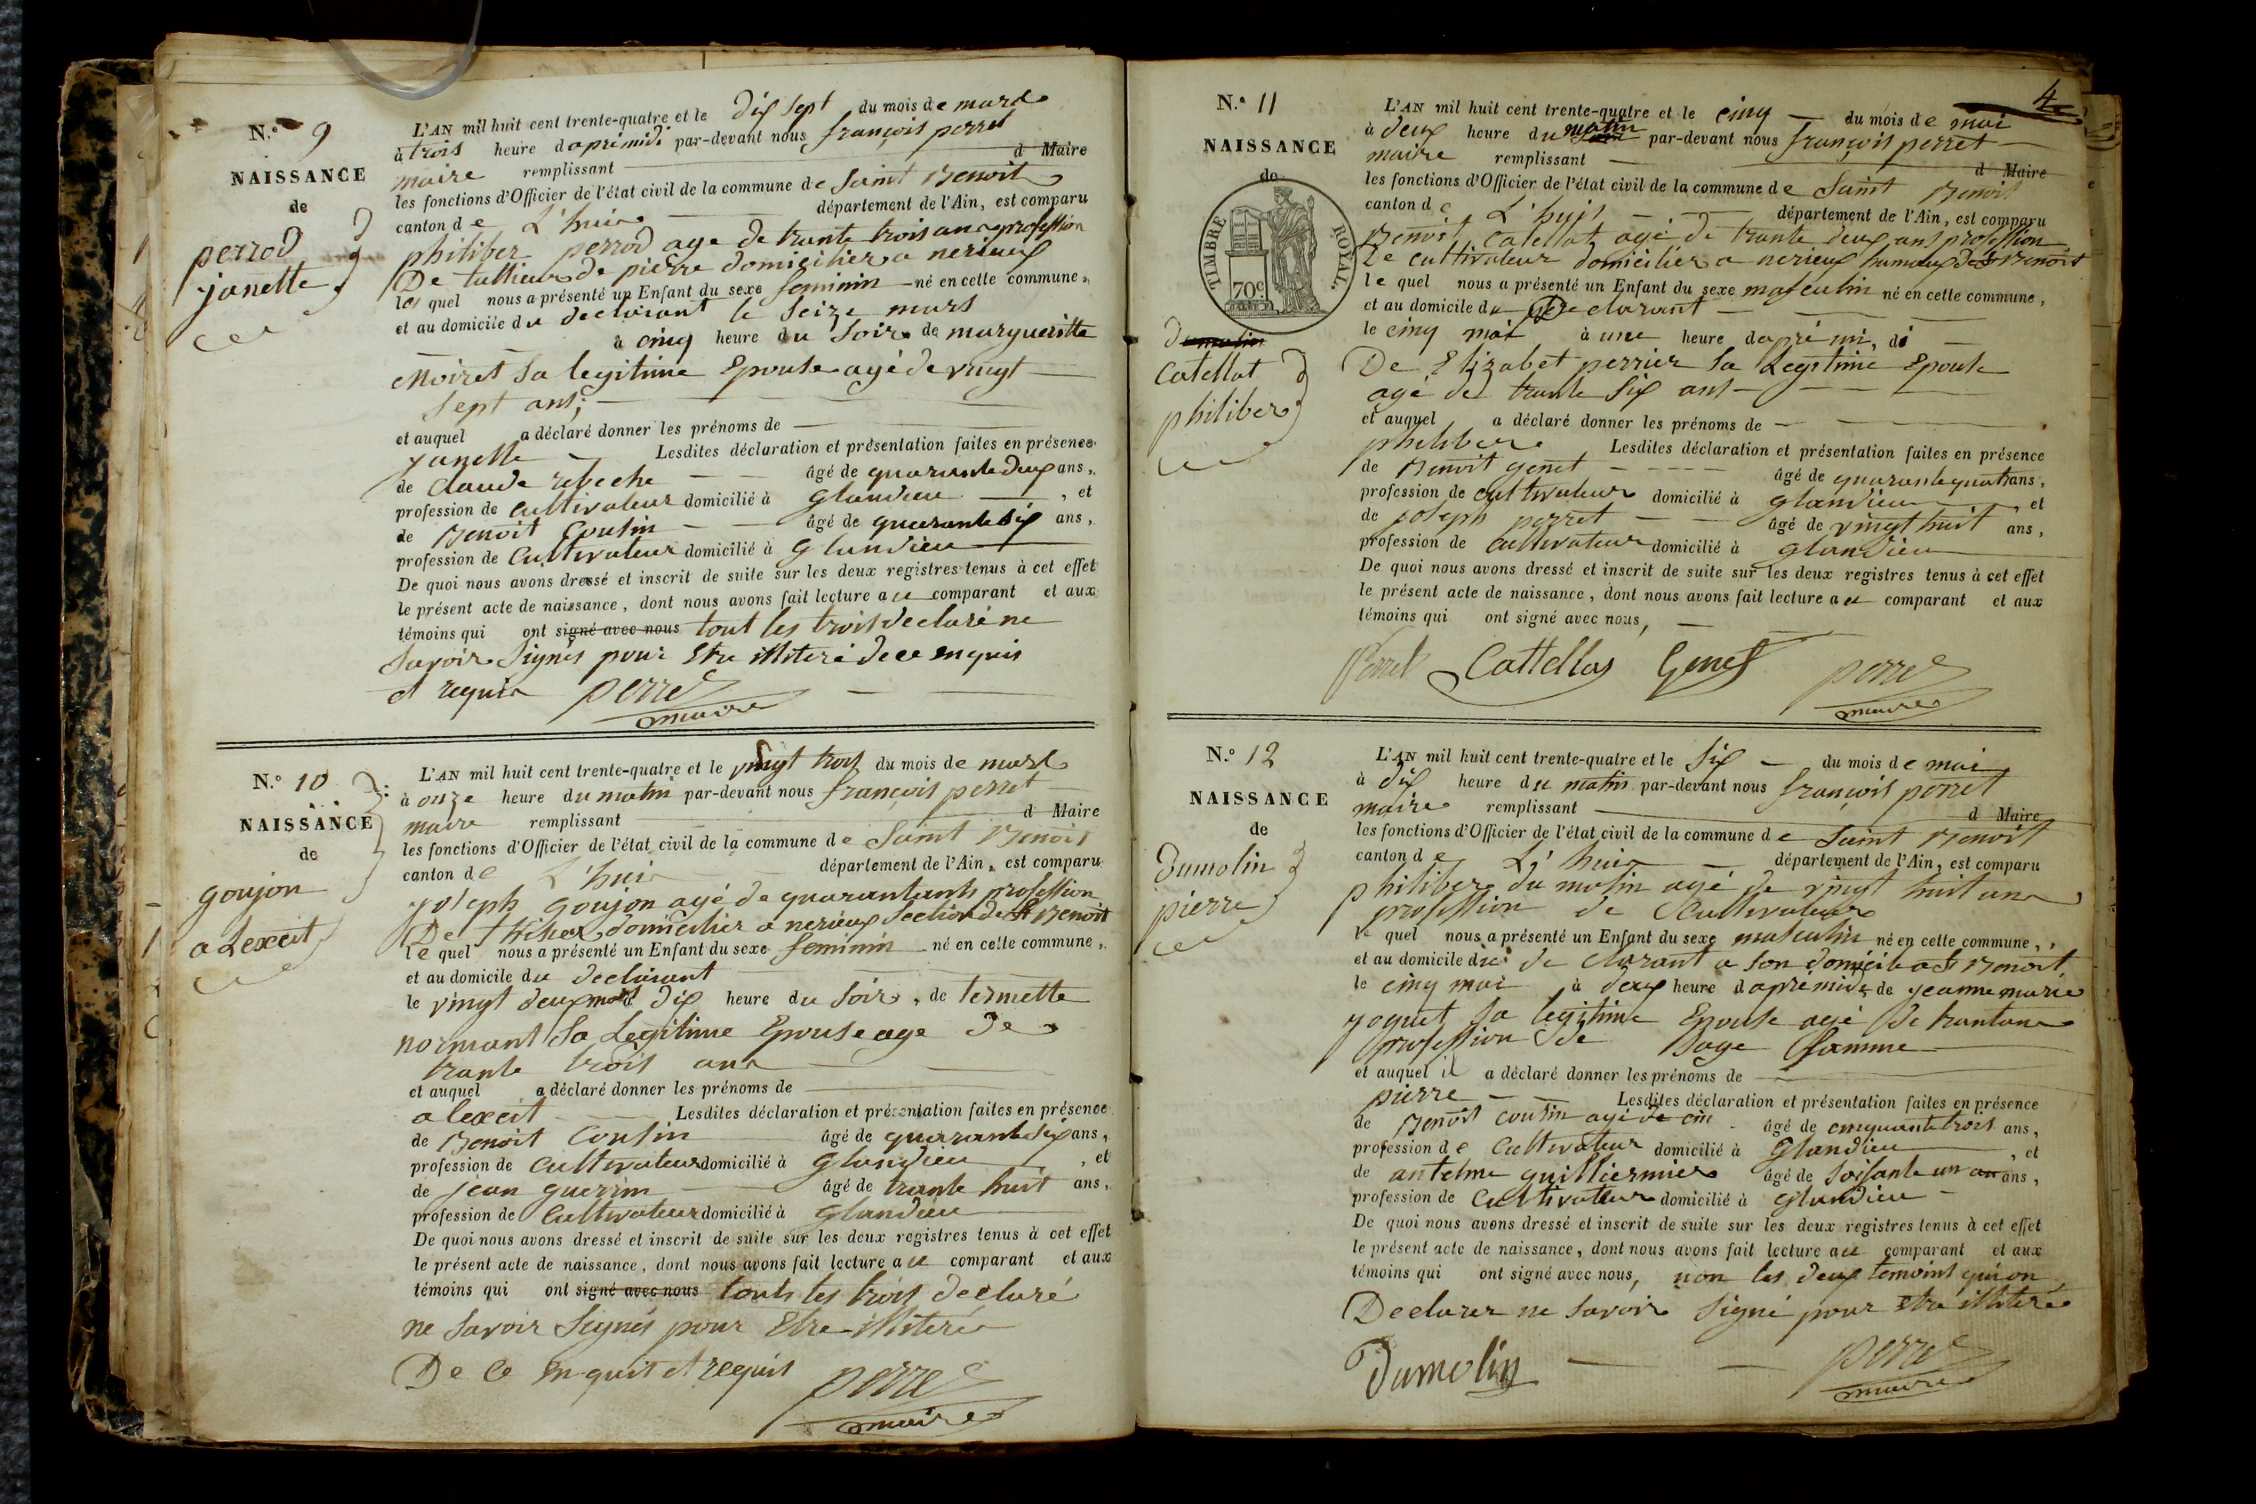 N.° 9
NAISSANCE
de
perrod
janette
L'AN mil huit cent trente-quatre et le dix sept du mois de mars
à trois heure daprimidi par-devant nous françois perret
maire remplissant d Maire
les fonctions d'Officier de l'état civil de la commune de Saint Benoit
canton de L'huis département de l'Ain, est comparu
philiber perrod age de trante trois ans profession
De tallieur de pierre domicilier a nerieux
le quel nous a présenté un Enfant du sexe feminin né en cette commune,
et au domicile du declarant le seize mars
à cinq heure du Soir de margueritte
moiret Sa legitime Epouse agé de vingt
sept ans;
et auquel a déclaré donner les prénoms de
janette Lesdites déclaration et présentation faites en présence
de claude rebeche âgé de quarante deux ans,
profession de cultivateur domicilié à glandieu, et
de Benoit Cousin âgé de quarante six ans,
profession de Cultivateur domicilié à glandieu
De quoi nous avons dressé et inscrit de suite sur les deux registres tenus à cet effet
le présent acte de naissance, dont nous avons fait lecture au comparant et aux
témoins qui ont signé avec nous tout les trois declaré ne
Savoir Signés pour Etre illiteré de ce enquis
et requis perret
maire
N.° 10
NAISSANCE
de
goujon
alexcit
L'AN mil huit cent trente-quatre et le vingt trois du mois de mars
à onze heure du matin par-devant nous françois perret
maire remplissant d Maire
les fonctions d'Officier de l'état civil de la commune de Saint Benoit
canton de L'huis département de l'Ain, est comparu
joseph goujon agé de quarantants profession
De domicilier a nerieux Section de St Benoit
le quel nous a présenté un Enfant du sexe feminin né en cette commune,
et au domicile du declarant
le vingt deux mars à dix heure du Soir, de termette
normant Sa Legitime Epouse age de
trante trois ans
et auquel a déclaré donner les prénoms de
alexcit Lesdites déclaration et présentation faites en présence
de Benoit Cousin âgé de quarante six ans,
profession de Cultivateur domicilié à glandieu, et
de jean guerrin âgé de trante huit ans,
profession de Cultivateur domicilié à glandieu
De quoi nous avons dressé et inscrit de suite sur les deux registres tenus à cet effet
le présent acte de naissance, dont nous avons fait lecture au comparant et aux
témoins qui ont signé avec nous touts les trois declaré
ne Savoir Signés pour Etre illiteré
De Ce enquit et requis perret
maire
4
N.° 11
NAISSANCE
de
TIMBRE ROYAL.
70c
dumolin
catellat
philiber
L'AN mil huit cent trente-quatre et le cinq du mois de mai
à deux heure du matin par-devant nous françois perret
maire remplissant d Maire
les fonctions d'Officier de l'état civil de la commune de Saint Benoit
canton de L'huis département de l'Ain, est comparu
Benoit Catellat agé de trante deux ans profession
De cultivateur domicilier a nerieux hameux de St Benoit
le quel nous a présenté un Enfant du sexe masculin né en cette commune,
et au domicile du De clarant
le cinq mai à une heure dapré mi, di
De Elizabet perrier Sa Legitime Epouse
agé de trante six ans
et auquel a déclaré donner les prénoms de
philiber Lesdites déclaration et présentation faites en présence
de Benoit genet âgé de quarante quatre ans,
profession de cultivateur domicilié à glandieu, et
de joseph perret âgé de vingt huit ans,
profession de Cultivateur domicilié à glandieu
De quoi nous avons dressé et inscrit de suite sur les deux registres tenus à cet effet
le présent acte de naissance, dont nous avons fait lecture au comparant et aux
témoins qui ont signé avec nous,
Perret Cattellas Genet perret
maire
N.° 12
NAISSANCE
de
Dumolin
pierre
L'AN mil huit cent trente-quatre et le Six du mois de mai
à dix heure du matin par-devant nous françois perret
maire remplissant d Maire
les fonctions d'Officier de l'état civil de la commune de Saint Benoit
canton de L'huis département de l'Ain, est comparu
philiber du molin agé de vingt huit ans
profession de Cultivateur
le quel nous a présenté un Enfant du sexe masculin né en cette commune,
et au domicile du de clarant a Son domicile a St Benoit
le cinq mai à deux heure daprémidi de jeanne marie
joquet Sa legitime Epouse agé de trantans
profession de Sage famme
et auquel il a déclaré donner les prénoms de
pierre Lesdites déclaration et présentation faites en présence
de Benoit cousin agé de cin âgé de cinquante trois ans,
profession de Cultivateur domicilié à Glandieu, et
de antelme guilliermier âgé de soisante un an ans,
profession de Cultivateur domicilié à glandieu
De quoi nous avons dressé et inscrit de suite sur les deux registres tenus à cet effet
le présent acte de naissance, dont nous avons fait lecture au comparant et aux
témoins qui ont signé avec nous, non les deux temoins qui on
Declarer ne Savoir Signé pour Etre illiteré
Dumolin perret
maire